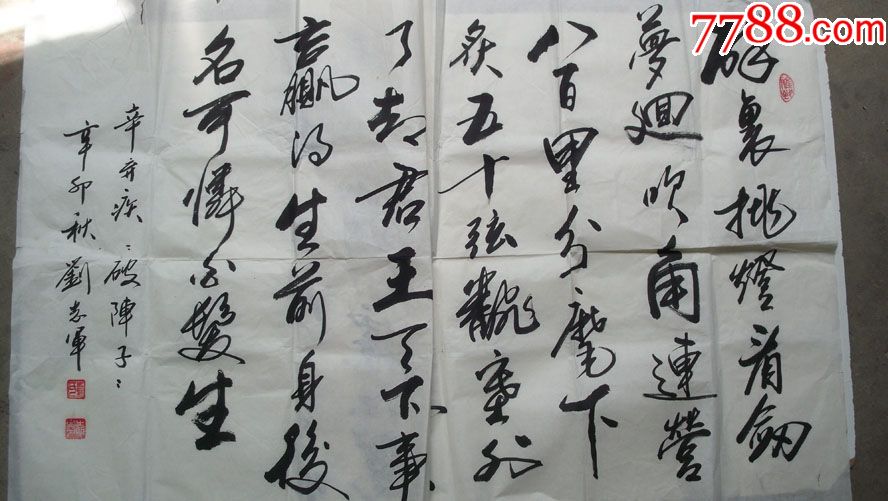 7788.com
醉裏挑燈看劍
夢迴吹角連營
八百里分麾下
炙五十弦翻塞外
了却君王天下事
贏得生前身後
名可憐白髮生
辛弃疾：破陣子：
辛卯秋劉志軍